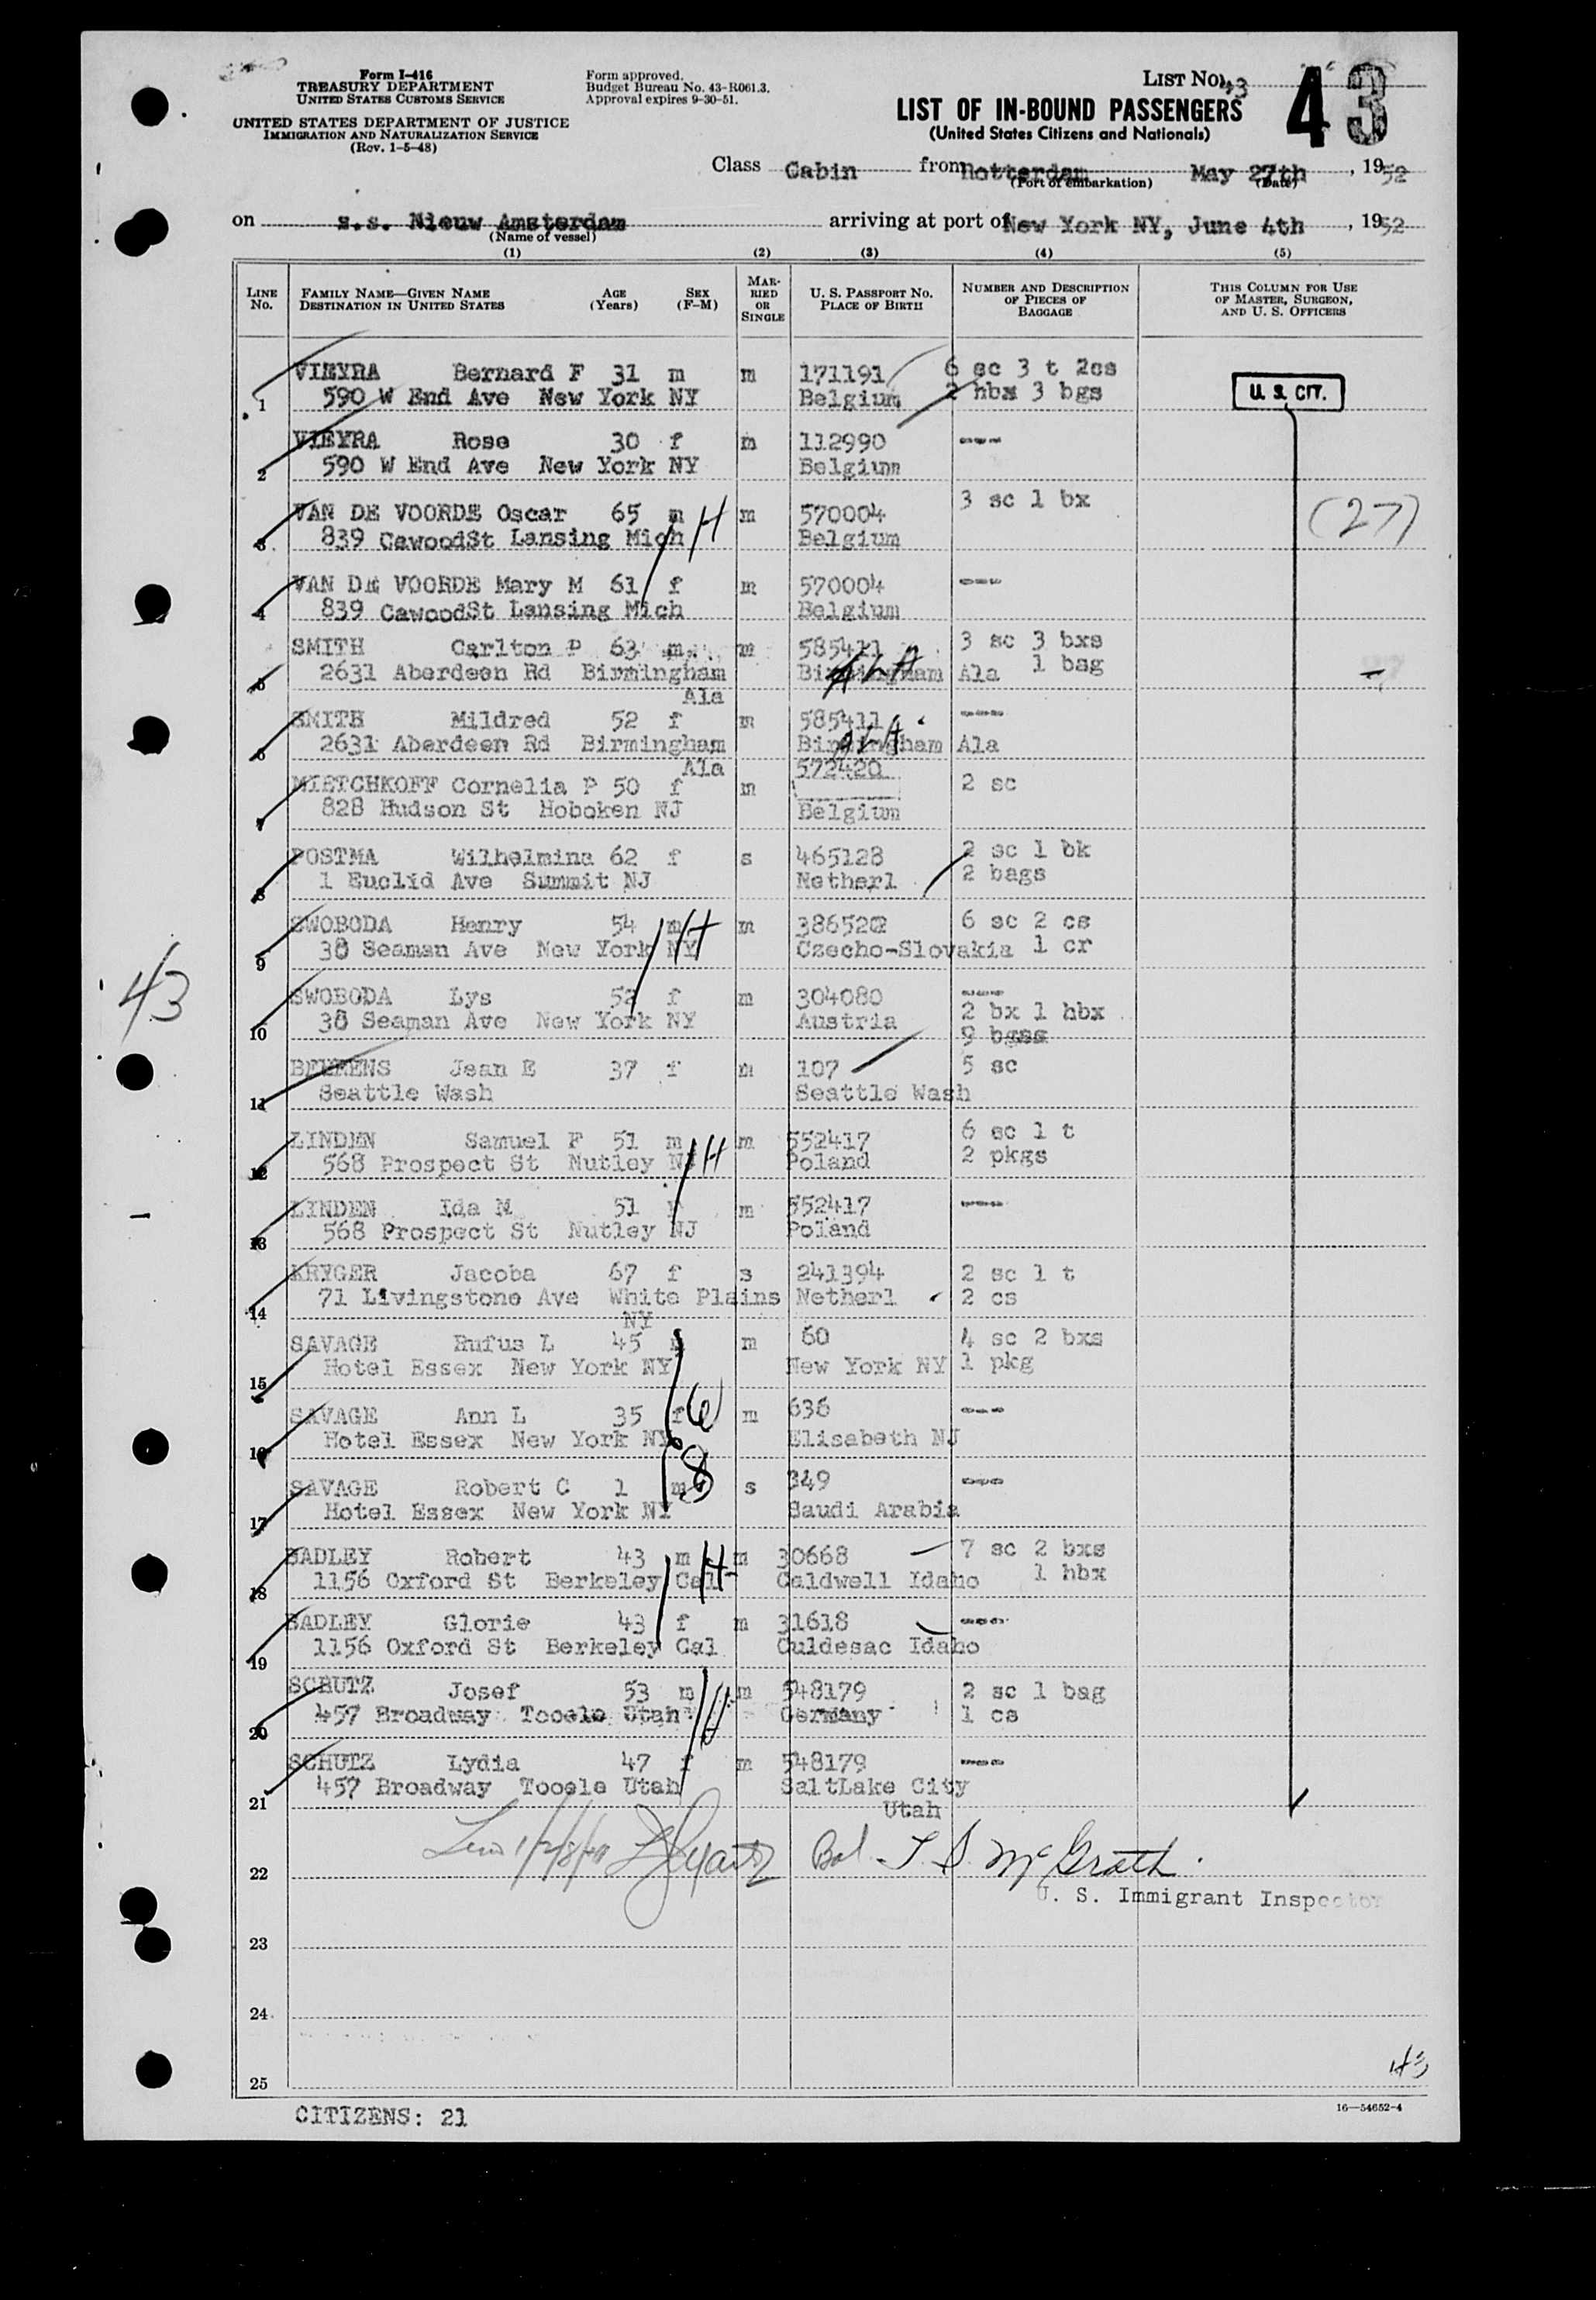 Form I-416
TREASURY DEPARTMENT
UNITED STATES CUSTOMS SERVICE
UNITED STATES DEPARTMENT OF JUSTICE
IMMIGRATION AND NATURALIZATION SERVICE
(Rev. 1-5-48)
Form approved.
Budget Bureau No. 43-R061.3.
Approval expires 9-30-51.
LIST NO. 43
43
LIST OF IN-BOUND PASSENGERS
(United States Citizens and Nationals)
Class Cabin from Rotterdam May 27th, 1952
(Port of embarkation) (Date)
on s.s. Nieuw Amsterdam arriving at port of New York NY, June 4th, 1952
(Name of vessel)
(1) (2) (3) (4) (5)
LINE No. FAMILY NAME—GIVEN NAME DESTINATION IN UNITED STATES AGE (Years) SEX (F-M) MARRIED OR SINGLE U. S. PASSPORT NO. PLACE OF BIRTH NUMBER AND DESCRIPTION OF PIECES OF BAGGAGE THIS COLUMN FOR USE OF MASTER, SURGEON, AND U. S. OFFICERS
VIEYRA Bernard F 31 m m 171191 6 sc 3 t 2cs
1 590 W End Ave New York NY Belgium 2 hbx 3 bgs U. S. CIT.
VIEYRA Rose 30 f m 112990 ---
2 590 W End Ave New York NY Belgium
VAN DE VOORDE Oscar 65 m H m 570004 3 sc 1 bx (27)
3 839 CawoodSt Lansing Mich Belgium
VAN DE VOORDE Mary M 61 f m 570004 ---
4 839 CawoodSt Lansing Mich Belgium
SMITH Carlton P 63 m m 585411 3 sc 3 bxs
5 2631 Aberdeen Rd Birmingham Birmingham Ala 1 bag
Ala
SMITH Mildred 52 f m 585411 ---
6 2631 Aberdeen Rd Birmingham Birmingham Ala
Ala 572420
MIETCHKOFF Cornelia P 50 f m 2 sc
7 828 Hudson St Hoboken NJ Belgium
POSTMA Wilhelmina 62 f s 465128 2 sc 1 bk
8 1 Euclid Ave Summit NJ Netherl 2 bags
SWOBODA Henry 54 m H m 386522 6 sc 2 cs
9 38 Seaman Ave New York NY Czecho-Slovakia 1 cr
43
SWOBODA Lys 52 f m 304080 ---
10 38 Seaman Ave New York NY Austria 2 bx 1 hbx
9 bgss
BEHRENS Jean E 37 f m 107 5 sc
11 Seattle Wash Seattle Wash
LINDEN Samuel F 51 m H m 552417 6 sc 1 t
12 568 Prospect St Nutley NJ Poland 2 pkgs
LINDEN Ida M 51 f m 552417 ---
13 568 Prospect St Nutley NJ Poland
KRYGER Jacoba 67 f s 241394 2 sc 1 t
14 71 Livingstone Ave White Plains Netherl 2 cs
NY
SAVAGE Rufus L 45 m m 60 4 sc 2 bxs
15 Hotel Essex New York NY New York NY 1 pkg
SAVAGE Ann L 35 f m 636 ---
16 Hotel Essex New York NY Elisabeth NJ
SAVAGE Robert C 1 m s 349 ---
17 Hotel Essex New York NY Saudi Arabia
BADLEY Robert 43 m H m 30668 7 sc 2 bxs
18 1156 Oxford St Berkeley Cal Caldwell Idaho 1 hbx
BADLEY Glorie 43 f m 31618 ---
19 1156 Oxford St Berkeley Cal Culdesac Idaho
SCHUTZ Josef 53 m H m 548179 2 sc 1 bag
20 457 Broadway Tooele Utah Germany 1 cs
SCHUTZ Lydia 47 f m 548179 ---
21 457 Broadway Tooele Utah SaltLake City
Utah
22 T. S. McGrath
U. S. Immigrant Inspector
23
24
25
43
CITIZENS: 21
16—54652-4